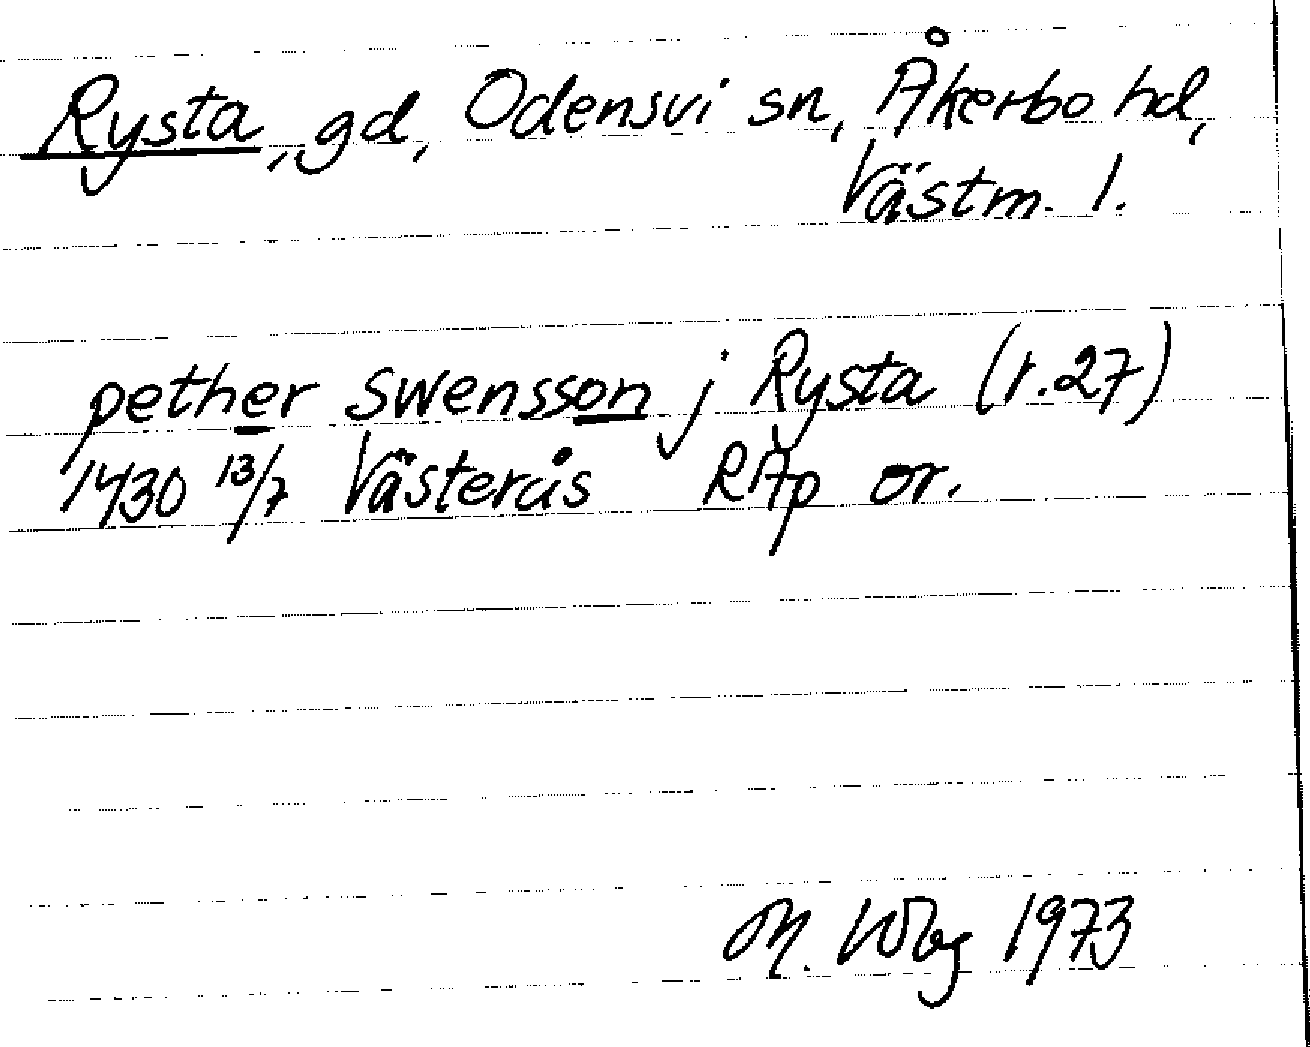 Rysta, gd, Odensvi sn, Åkerbo hd,
Västm. l.
pether swensson j Rysta (r.27)
1430 13/7 Västerås RAp or.
M. Wbg 1973